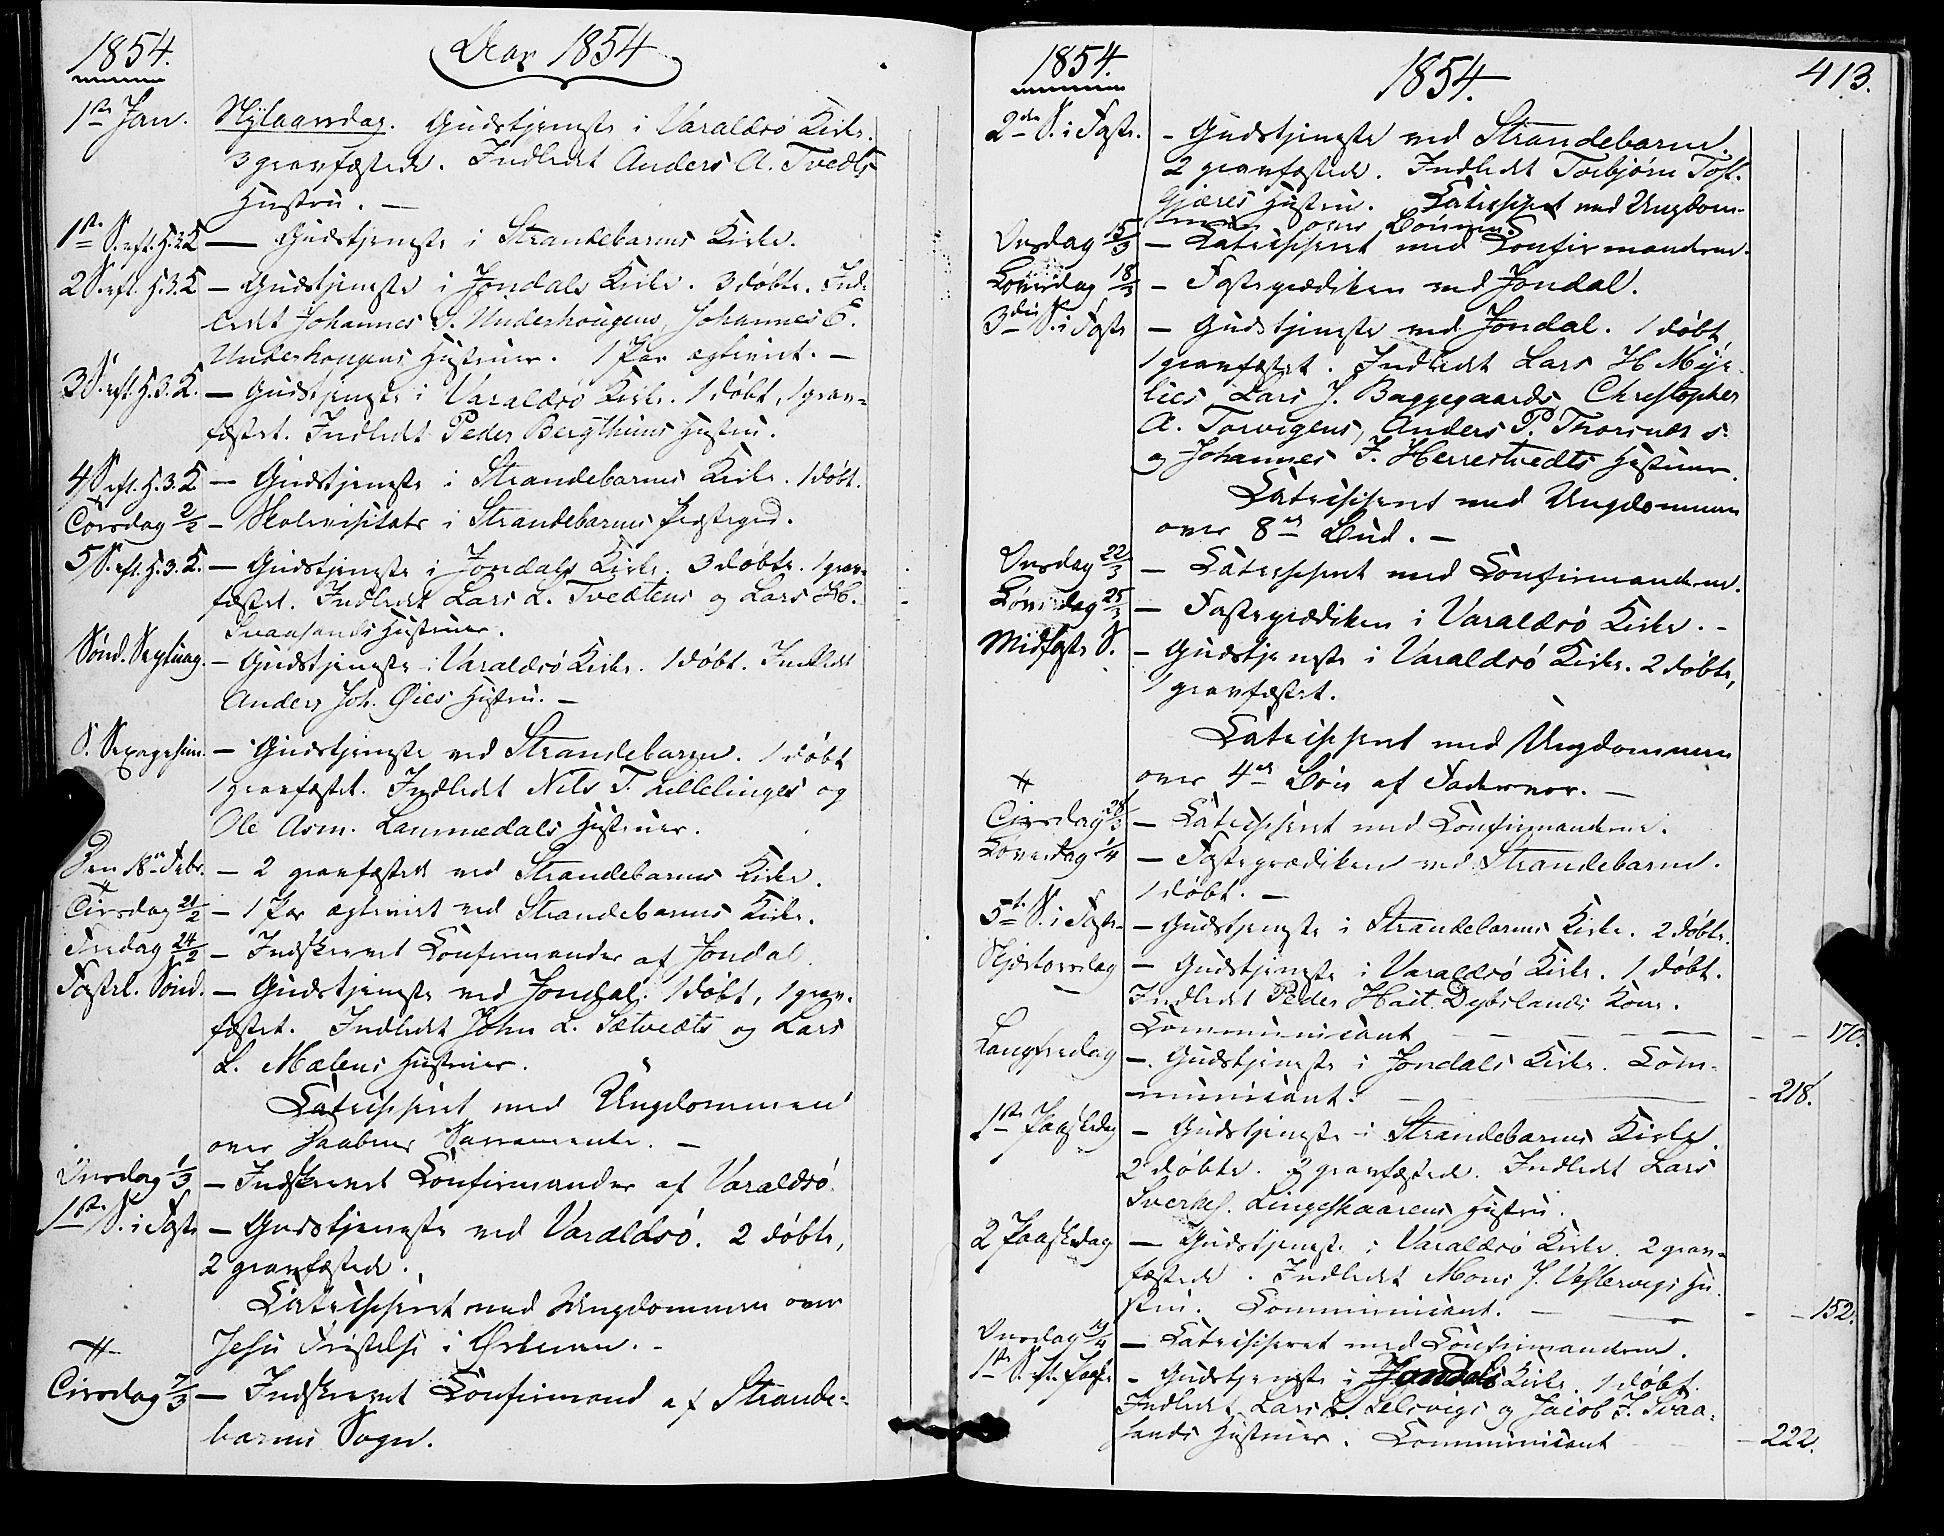 1854. Aar 1854
1ste Jan. Nytaarsdag. Gudstjeneste i Varaldsö Kirke.
3 gravfæstede. Indledet Anders A. Tvedts
Hustru. —
1ste S. eft. H.3.K — Gudstjeneste i Strandebarms Kirke.
2 S. eft. H.3.K — Gudstjeneste i Jondals Kirke. 3 døbte. Ind-
ledet Johannes S. Underhougens, Johannes E.
Underhougens Hustruer. 1 Par ægteviet. —
3 S. eft. H.3.K. — Gudstjeneste i Varaldsö Kirke. 1 døbt, 1 grav-
fæstet. Indledet Peder Bergthuns Hustru.
4 S eft. H.3.K — Gudstjeneste i Strandebarms Kirke. 1 døbt.
Torsdag 2/2 — Skolevisitats i Strandebarms Præstegd.
5 S. eft. H.3.K. — Gudstjeneste i Jondals Kirke. 3 døbte. 1 grav-
fæstet. Indledet Lars L. Tvedtens og Lars H.
Svaasands Hustruer.
Sönd. Septuag. — Gudstjeneste i Varaldsö Kirke. 1 døbt. Indledet
Anders Joh. Øies Hustru. —
S. Sexagesim. — Gudstjeneste ved Strandebarm. 1 døbt
1 gravfæstet. Indledet Nils T. Lillelinges og
Ole Asm. Lammedals Hustruer.
Den 18de Febr. — 2 gravfæstede ved Strandebarms Kirke.
Tirsdag 21/2 — 1 Par ægteviet ved Strandebarms Kirke.
Fredag 24/2 — Indskrevet Confirmander af Jondal.
Fastel. Sönd. — Gudstjeneste ved Jondal. 1 døbt, 1 grav-
fæstet. Indledet John L. Sætvedts og Lars
L. Mælens Hustruer.
Catechiseret med Ungdommen
over Daabens Sacramente. —
Onsdag 1/3 — Indskrevet Confirmander af Varaldsö.
1ste S. i Faste — Gudstjeneste ved Varaldsö. 2 døbte,
2 gravfæstede.
Catechiseret med Ungdommen over
Jesu Fristelse i Ørkenen. —
Tirsdag 7/3 — Indskrevet Confirmand af Strande-
barms Sogn.
1854. 1854. 413.
2den S. i Faste. — Gudstjeneste ved Strandebarm.
2 gravfæstede. Indledet Torbjörn Tost.
Gjæres Hustru. Catechiseret med Ungdom-
men over Bönnen.
Onsdag 15/3 — Catechiseret med Confirmanderne.
Löverdag 18/3 — Fasteprædiken ved Jondal.
3die S. i Faste — Gudstjeneste ved Jondal. 1 døbt,
1 gravfæstet. Indledet Lars H Myk-
lies, Lars J. Baggegaards, Christopher
A. Torvigens, Anders P. Thorsnæs's
og Johannes J. Herrestvedts Hustruer.
Catechiseret med Ungdommen
over 8de Bud. —
Onsdag 22/3 — Catechiseret med Confirmanderne.
Löverdag 25/3 — Fasteprædiken i Varaldsö Kirke. —
Midfaste S. — Gudstjeneste i Varaldsö Kirke. 2 døbte,
1 gravfæstet.
Catechiseret med Ungdommen
over 4de Bön af Fadervor. —
Tirsdag 28/3 — Catechiseret med Confirmanderne.
Löverdag 1/4 — Fasteprædiken ved Strandebarm.
1 døbt. —
5te S. i Faste. — Gudstjeneste i Strandebarms Kirke. 2 døbte.
Skjærtorsdag — Gudstjeneste i Varaldsö Kirke. 1 døbt.
Indledet Peder Dybslands Kone.
Communicant — 170.
Langfredag — Gudstjeneste i Jondals Kirke. Com-
municant: — 218.
1ste Paaskedag — Gudstjeneste i Strandebarms Kirke.
2 døbte. 3 gravfæstede. Indledet Lars
Sverkes. Lingeskaarens Hustru.
2 Paaskedag — Gudstjeneste i Varaldsö Kirke. 2 grav-
fæstede. Indledet Mons J. Vestervegs Hu-
stru. Communicant. — 152.
Onsdag 19/4 — Catechiseret med Confirmanderne.
1ste S. eft. Paaske — Gudstjeneste i Jondals Kirke. 1 døbt.
Indledet Lars L. Selsvigs og Jacob J. Svaa-
sands Hustruer. Communicant — 222.